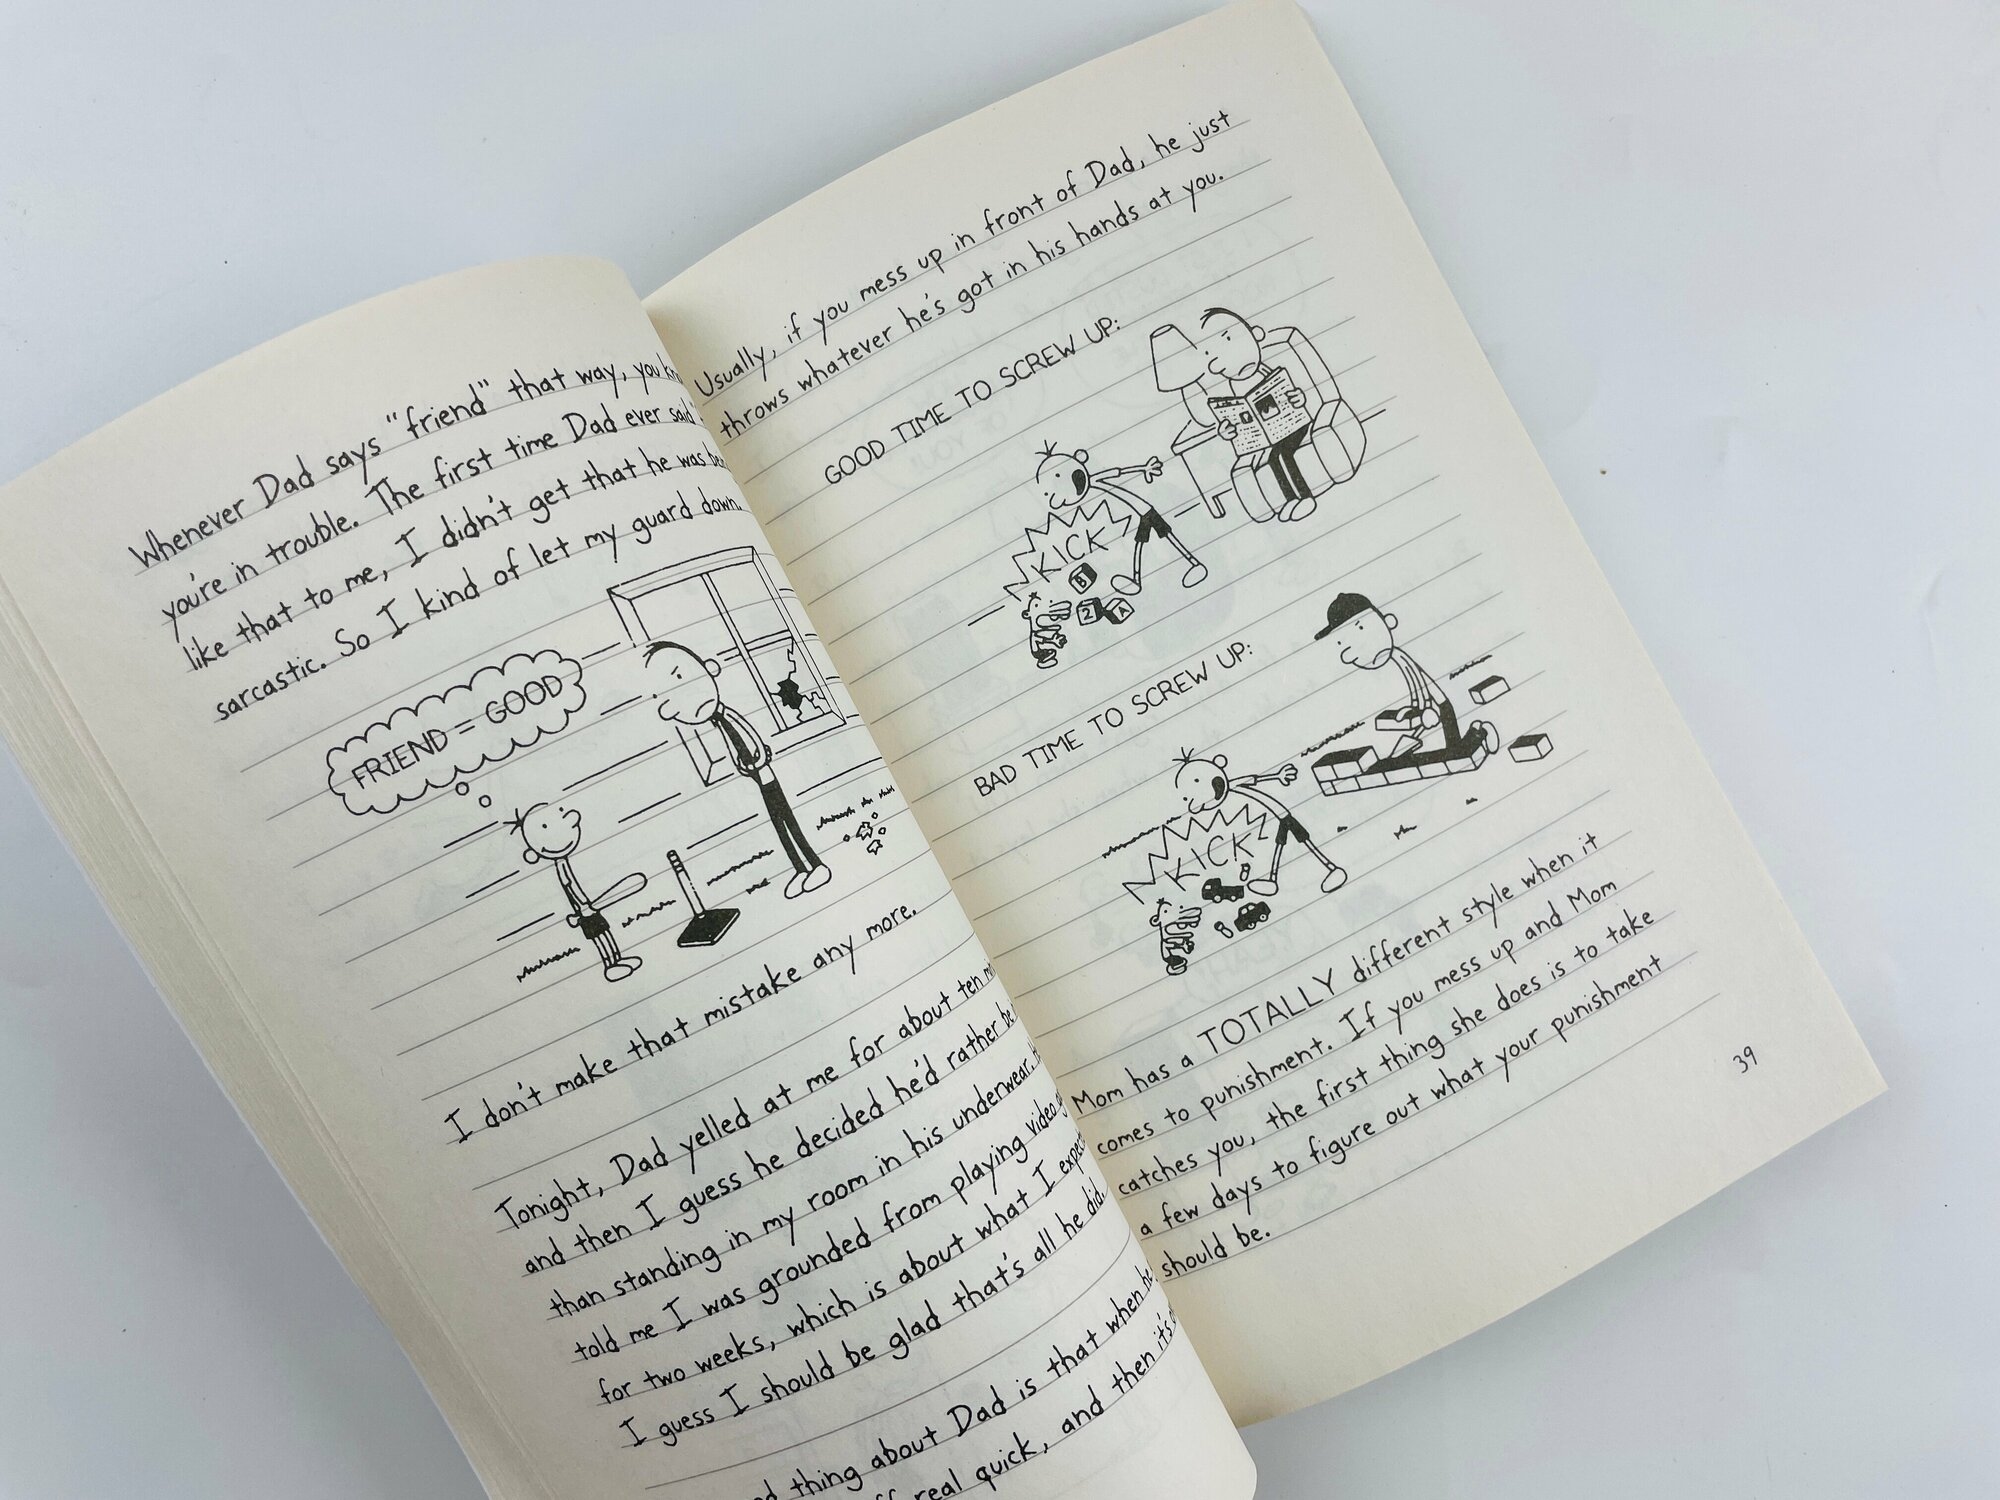 Whenever Dad says "friend" that way, you
you're in trouble. The first time Dad ever said
like that to me, I didn't get that he was
sarcastic. So I kind of let my guard down.
FRIEND = GOOD
I don't make that mistake any more.
Tonight, Dad yelled at me for about ten
and then I guess he decided he'd rather be
than standing in my room in his underwear.
told me I was grounded from playing video
for two weeks, which is about what I
I guess I should be glad that's all he did.
thing about Dad is that when he
real quick, and then it's
Usually, if you mess up in front of Dad, he just
throws whatever he's got in his hands at you.
GOOD TIME TO SCREW UP:
KICK
B
2 A
BAD TIME TO SCREW UP:
KICK
Mom has a TOTALLY different style when it
comes to punishment. If you mess up and Mom
catches you, the first thing she does is to take
a few days to figure out what your punishment
should be.
39